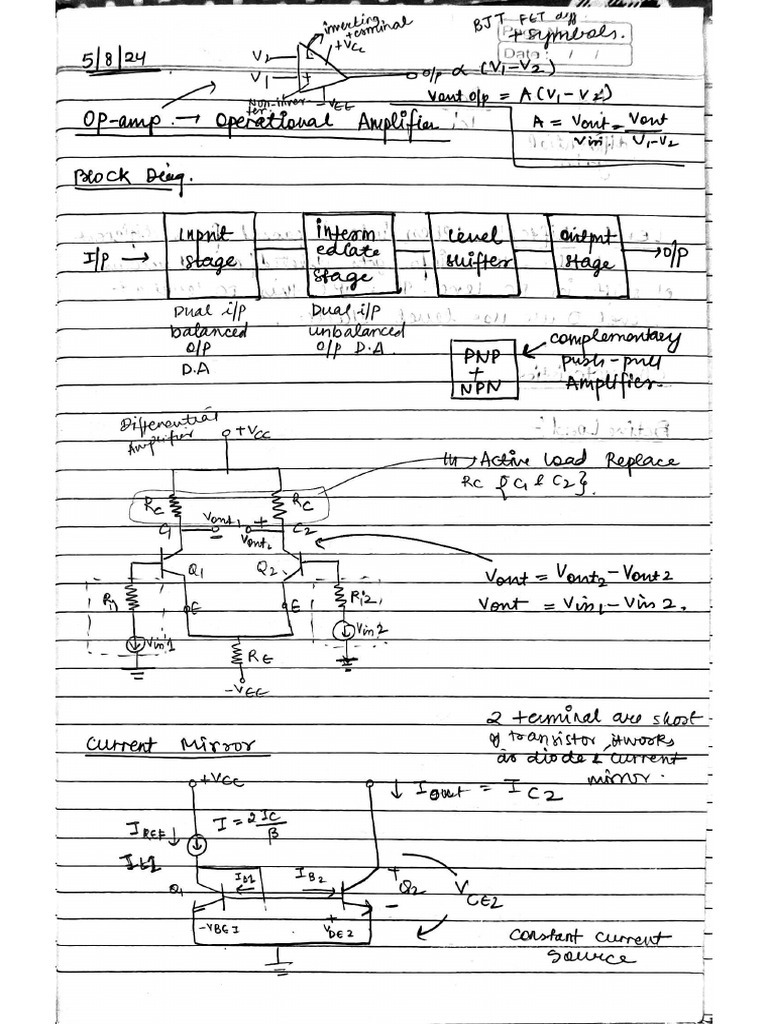 BJT FET diff
+ symbols.
Date / /
5/8/24
inverting
terminal
+Vcc
V2
V1
-
+
O/p α (V1-V2)
Non-inver
ter.
-VEE
Vout o/p = A(V1-V2)
Op-amp → Operational Amplifier
A = Vout = Vout
Vin V1-V2
Block Diag.
I/p →
input
stage
interm
ediate
stage
Level
shifter
output
stage
→ O/P
Dual i/p
balanced
O/P
D.A
Dual i/p
unbalanced
O/p D.A.
PNP
+
NPN
complementary
push-pull
Amplifier.
Differential
Amplifier
+Vcc
→ Active load Replace
Rc {C1 & C2}.
Rc
Rc
C1
Vout1
+
Vout2
C2
Q1
Q2
Vout = Vout2-Vout2
Vout = Vin1-Vin2.
Ri1
E
E
Ri2
Vin1
Vin2
RE
-VEE
2 terminal are short
of transistor, it works
as diode & current
mirror.
Current Mirror
+Vcc
↓ Iout = IC2
IREF ↓
I = 2IC
β
Q1
IB1
IB2
+
Q2
-
VCE2
-VBE1
+
VBE2
constant current
source